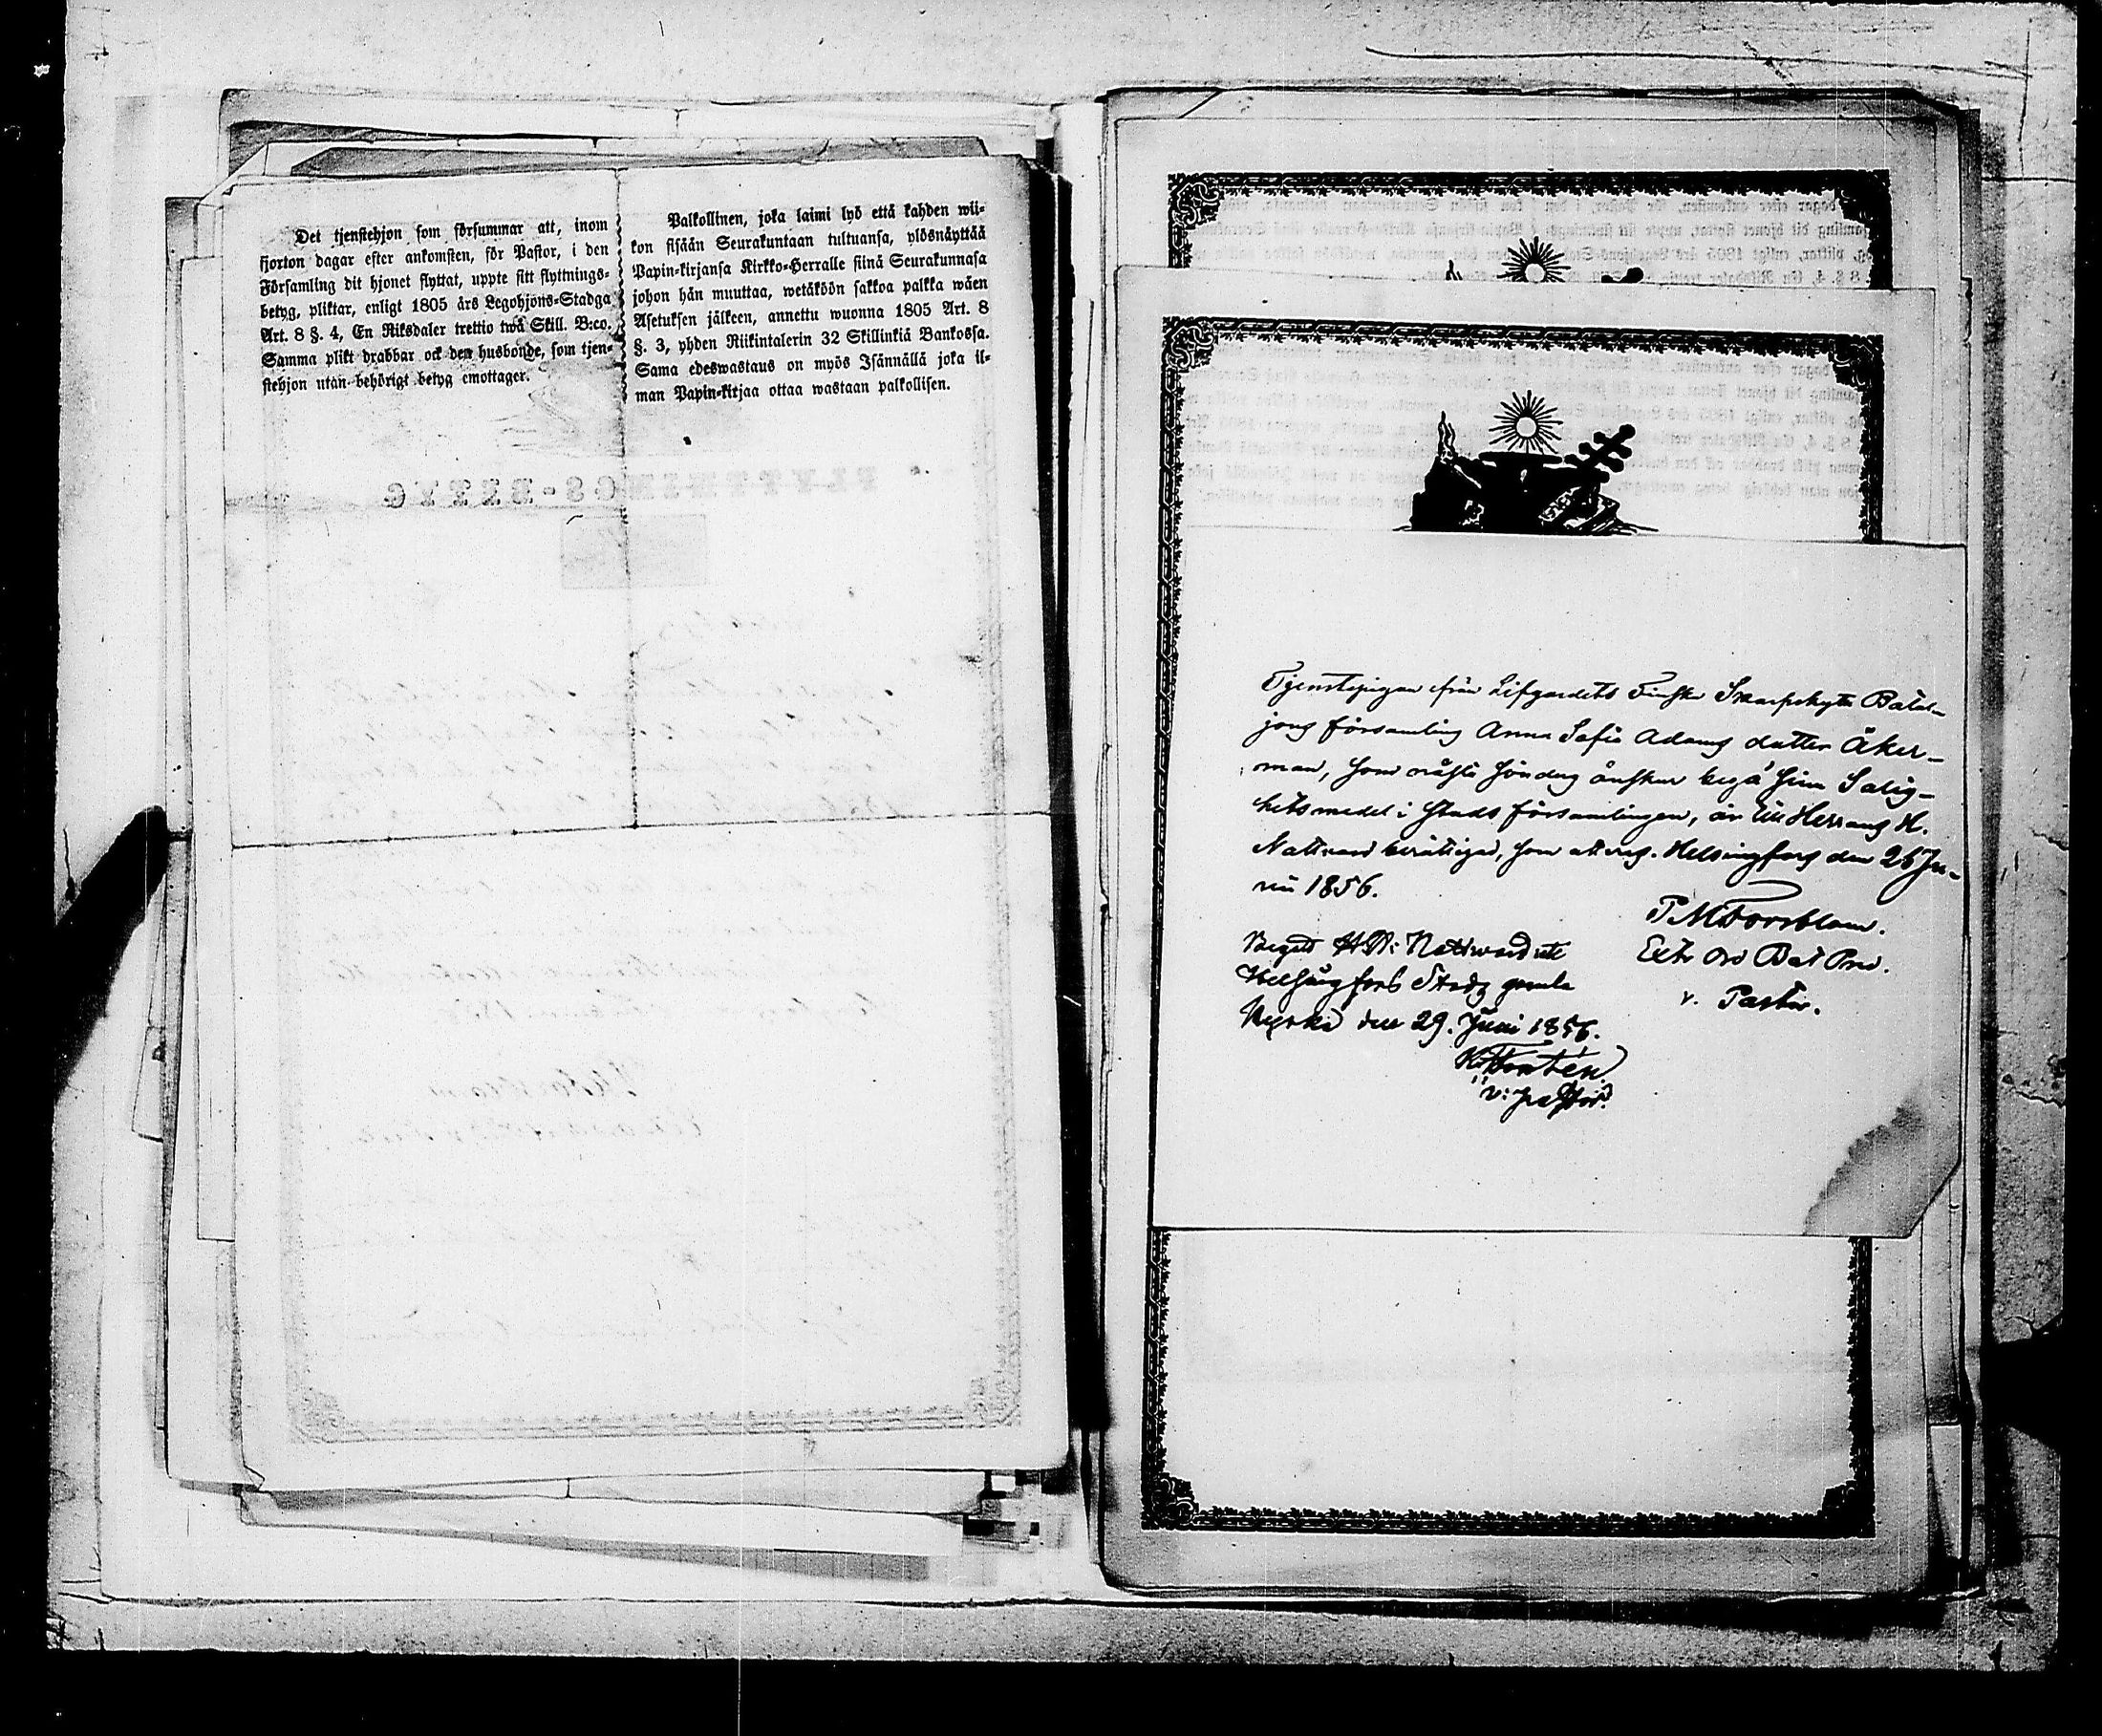 Det tjenstehjon som försummar att, inom
fjorton dagar efter ankomsten, för Pastor, i den
Församling dit hjonet flyttat, uppte sitt flyttnings-
betyg, pliktar, enligt 1805 års Legohjons-Stadga
Art. 8 §. 4, En Riksdaler trettio twå Skill. B:co.
Samma plikt drabbar ock den husbonde, som tjen-
stehjon utan behörigt betyg emottager.
Palkollinen, joka laimi lyö että kahden wii-
kon sisään Seurakuntaan tultuansa, ylösnäyttää
Papin-kirjansa Kirkko-Herralle siinä Seurakunnasa
johon hän muuttaa, wetäköön sakkoa palkka wäen
Asetuksen jälkeen, annettu wuonna 1805 Art. 8
§. 3, yhden Riikintalerin 32 Skillinkiä Bankossa.
Sama edeswastaus on myös Isännällä joka il-
man Papin-kirjaa ottaa wastaan palkollisen.
FLYTTNINGS-BETYG
Tjenstepigan från Lifgardets Finska Skarpskytte Batal-
jons församling Anna Sofia Adams dotter Åker-
man, som nästa söndag önskar begå sin Salig-
hetsmedel i Stads församlingen, är till Herrans H.
Nattvard berättigad, som attest. Helsingfors den 26 Ju-
nii 1856.
Extr Ord Bat Pred.
v. Pastor.
Begått H: Nattward uti
Helsingfors Stads gamla
Kyrka den 29. Juni 1856.
v: pastor.